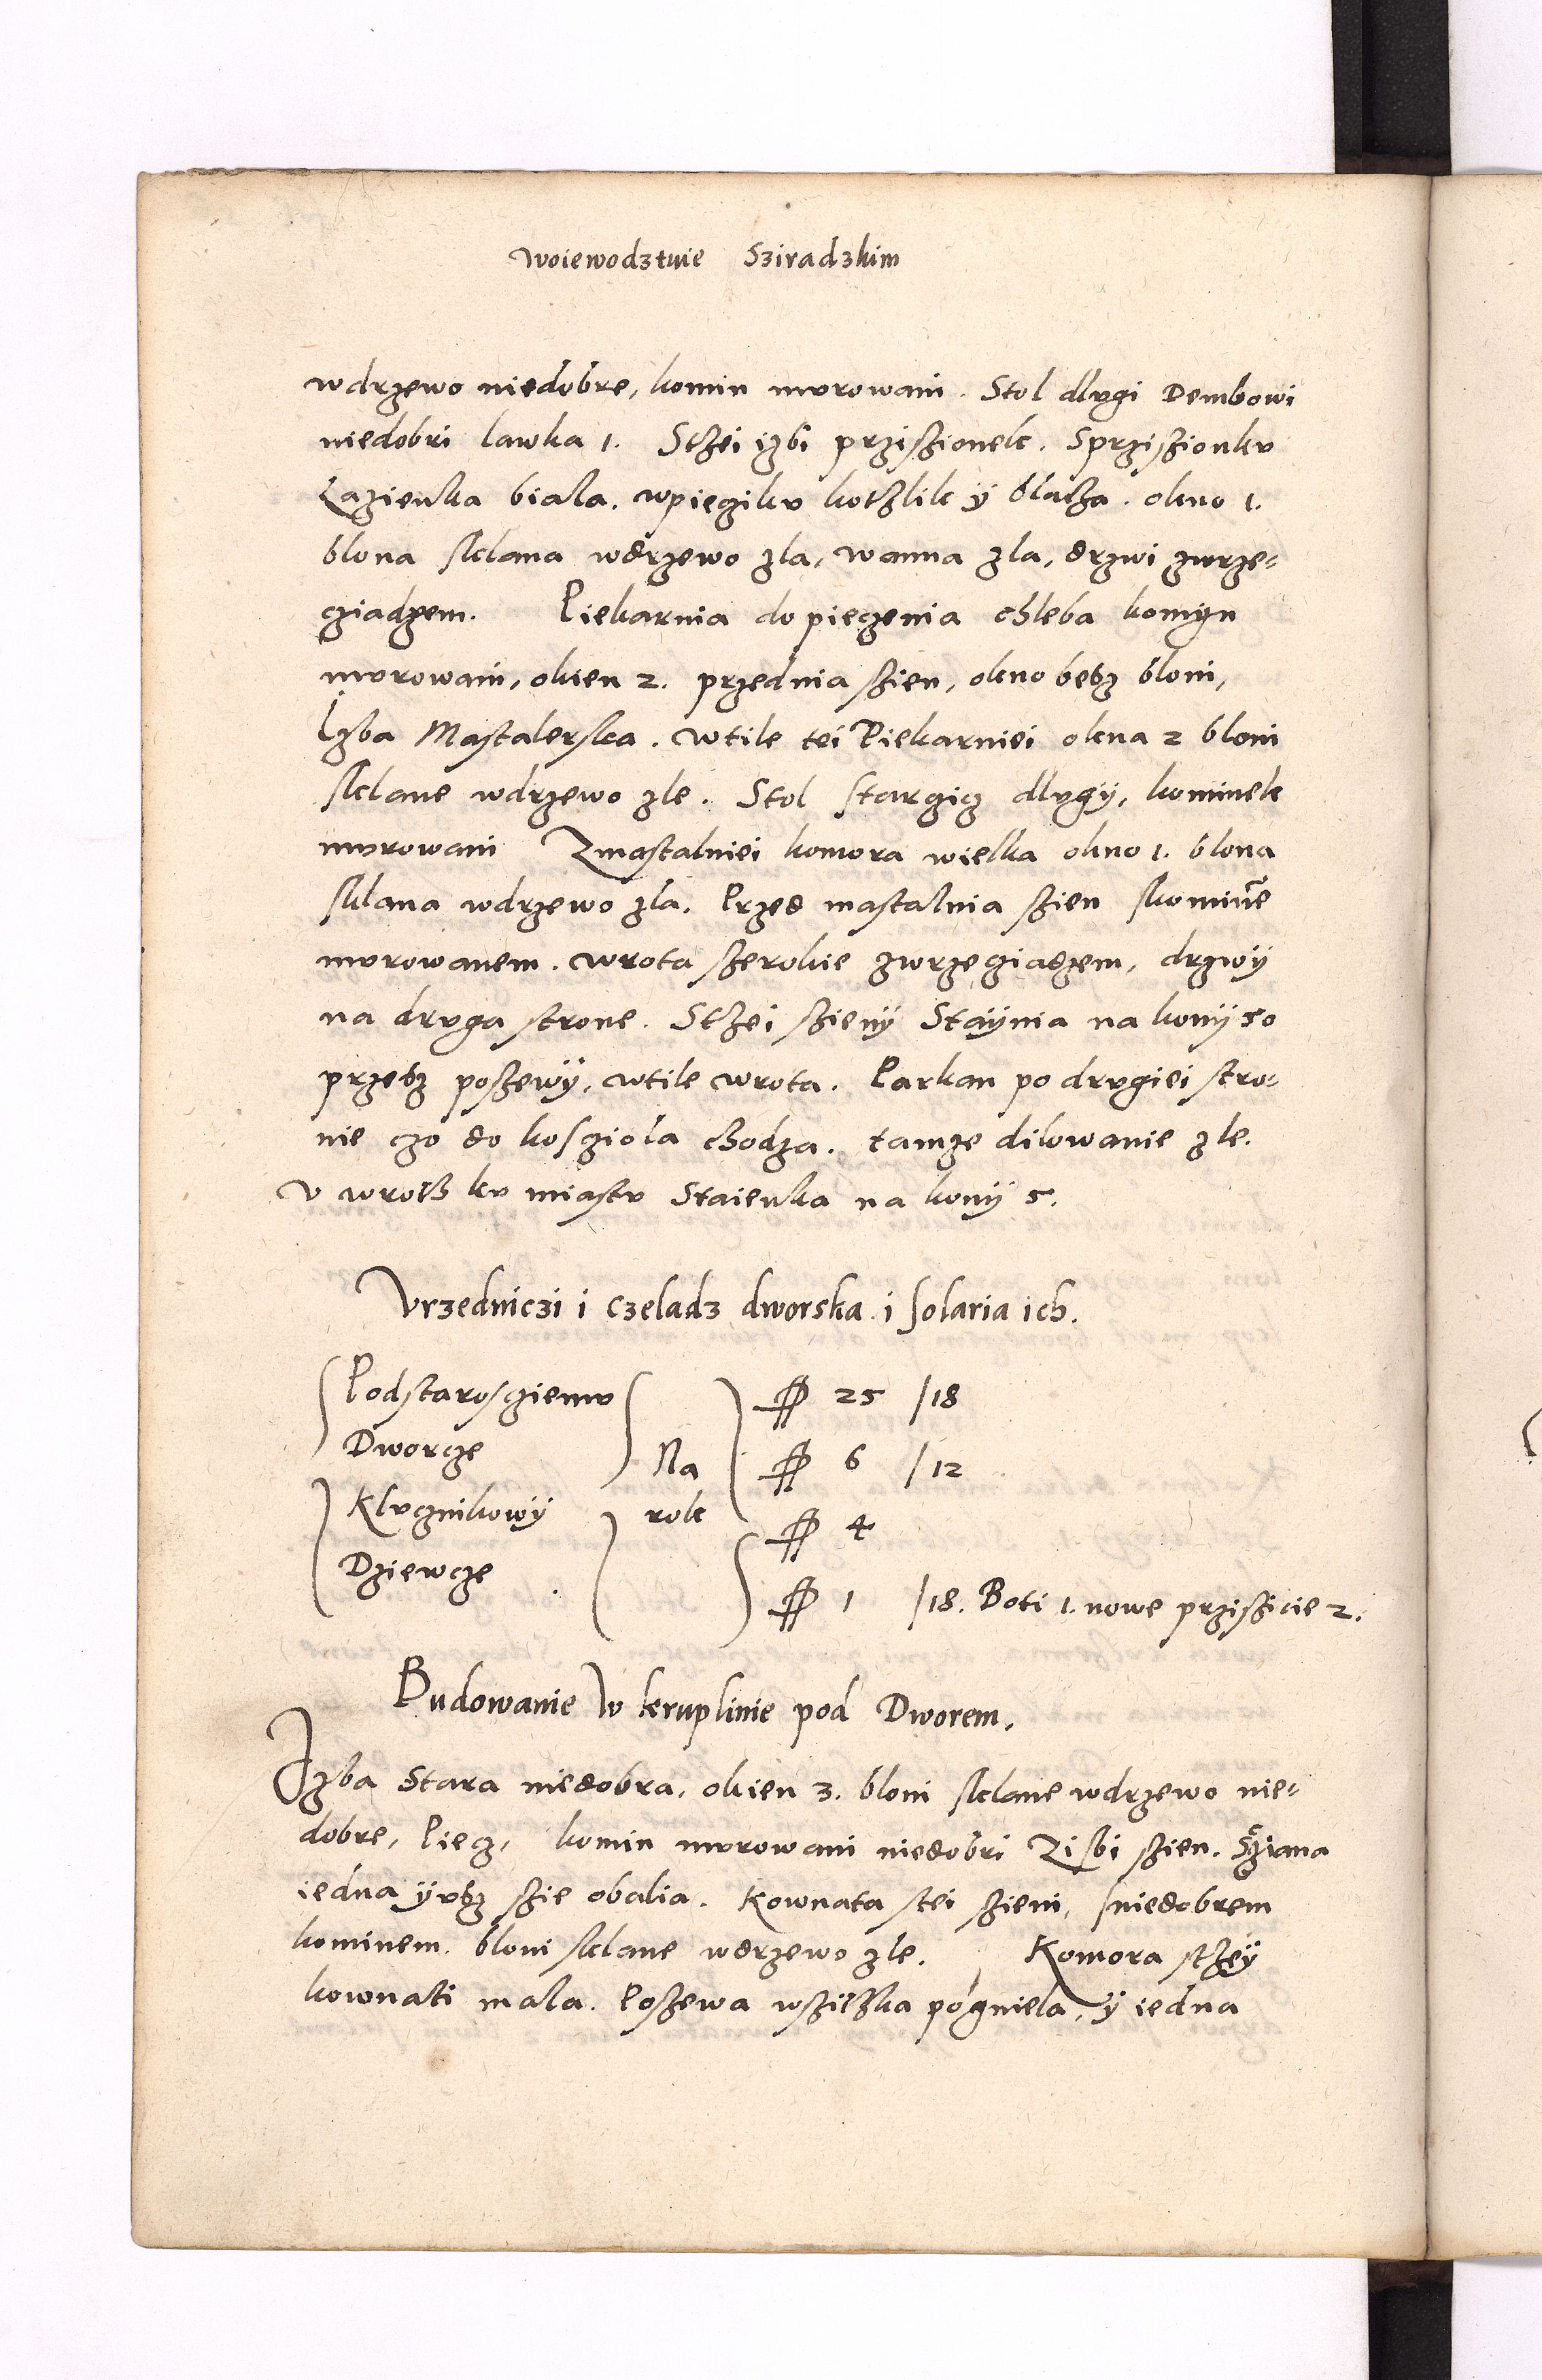 woiewodztwie Sziradzkim
wdrzewo niedobre, komin mvrowani. Stol dlvgi Dembowi
niedobri lawka 1. Stzei izbi prziszionek. Sprziszionkv
Łazienka biala. wpieczikv kotzlik ÿ blacha. okno 1.
blona sklana wdrzewo zla, wanna zla, drzwi zwrze-
cziadzem. Piekarnia do pieczenia chleba komyn
mvrowani, okien 2. przednia szien, okno bebz bloni,
Izba Mastalerska. wtile tei Piekarniei okna 2 bloni
sklane wdrzewo zle. Stol starczicz dlvgy, kominek
mvrowani Zmastalniei komora wielka okno 1. blona
sklana wdrzewo zla. Przed mastalnia szien skominē
mvrowanem. wrota szerokie zwrzecziadzem, drzwÿ
na drvga strone. Stzei szienÿ Staÿnia na konÿ 50
przebz poszewÿ, wtile wrota. Parkan po drvgiei stro-
nie czo do kosziola chodza. tamze dilowanie zle.
v wroth kv miastv Staienka na konÿ 5.
Vrzedniczi i czeladz dworska i solaria ich.
Podstarosziemv ₽ 25 /18
Dworcze Na ₽ 6 /12
Klvcznikowÿ rok ₽ 4
Dziewcze ₽ 1 /18. Boti 1. nowe prziszicie 2.
Budowanie w kruplinie pod Dworem.
Izba Stara niedobra. okien 3. bloni sklane wdrzewo nie-
dobre, Piecz, komin mvrowani niedobri Zisbi szien. Scziana
iedna ÿvbz szie obalia. Kownata stei szieni, sniedobrem
kominem. bloni sklane wdrzewo zle. Komora stzeÿ
kownati mala. Poszewa wszitzka pogniela, ÿ iedna